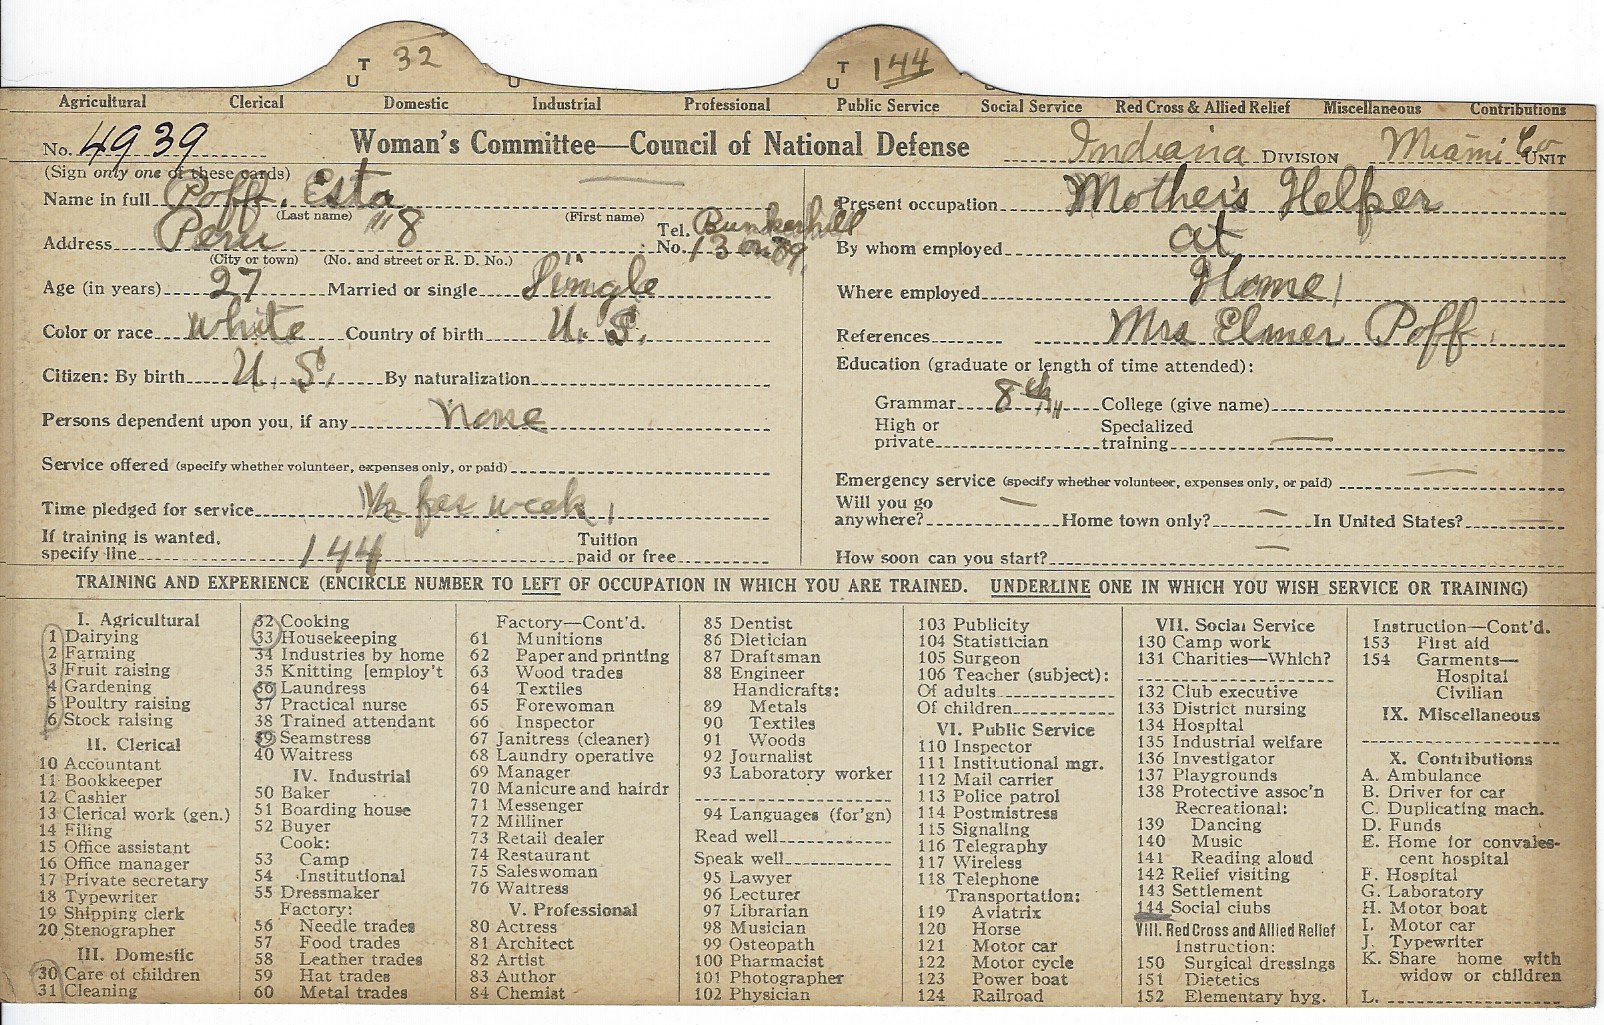 T 32 T 144
U U U
Agricultural Clerical Domestic Industrial Professional Public Service Social Service Red Cross & Allied Relief Miscellaneous Contributions
No. 4939 Woman's Committee—Council of National Defense Indiana DIVISION Miami Co UNIT
(Sign only one of these cards)
Name in full Poff. Esta
(Last name) (First name)
Address Peru "18 Tel. No. Bunkerhill 13 on 89.
(City or town) (No. and street or R. D. No.)
Age (in years) 27 Married or single Single
Color or race White Country of birth U. S.
Citizen: By birth U. S. By naturalization
Persons dependent upon you, if any None
Service offered (specify whether volunteer, expenses only, or paid)
Time pledged for service 1/2 per week
If training is wanted, Tuition
specify line 144 paid or free
Present occupation Mother's Helper
By whom employed at
Where employed Home
References Mrs Elmer Poff.
Education (graduate or length of time attended):
Grammar 8th College (give name)
High or Specialized
private training —
Emergency service (specify whether volunteer, expenses only, or paid) —
Will you go
anywhere? — Home town only? — In United States? —
How soon can you start? —
TRAINING AND EXPERIENCE (ENCIRCLE NUMBER TO LEFT OF OCCUPATION IN WHICH YOU ARE TRAINED. UNDERLINE ONE IN WHICH YOU WISH SERVICE OR TRAINING)
I. Agricultural
1 Dairying
2 Farming
3 Fruit raising
4 Gardening
5 Poultry raising
6 Stock raising
II. Clerical
10 Accountant
11 Bookkeeper
12 Cashier
13 Clerical work (gen.)
14 Filing
15 Office assistant
16 Office manager
17 Private secretary
18 Typewriter
19 Shipping clerk
20 Stenographer
III. Domestic
30 Care of children
31 Cleaning
32 Cooking
33 Housekeeping
34 Industries by home
35 Knitting [employ't
36 Laundress
37 Practical nurse
38 Trained attendant
39 Seamstress
40 Waitress
IV. Industrial
50 Baker
51 Boarding house
52 Buyer
Cook:
53 Camp
54 Institutional
55 Dressmaker
Factory:
56 Needle trades
57 Food trades
58 Leather trades
59 Hat trades
60 Metal trades
Factory—Cont'd.
61 Munitions
62 Paper and printing
63 Wood trades
64 Textiles
65 Forewoman
66 Inspector
67 Janitress (cleaner)
68 Laundry operative
69 Manager
70 Manicure and hairdr
71 Messenger
72 Milliner
73 Retail dealer
74 Restaurant
75 Saleswoman
76 Waitress
V. Professional
80 Actress
81 Architect
82 Artist
83 Author
84 Chemist
85 Dentist
86 Dietician
87 Draftsman
88 Engineer
Handicrafts:
89 Metals
90 Textiles
91 Woods
92 Journalist
93 Laboratory worker
94 Languages (for'gn)
Read well
Speak well
95 Lawyer
96 Lecturer
97 Librarian
98 Musician
99 Osteopath
100 Pharmacist
101 Photographer
102 Physician
103 Publicity
104 Statistician
105 Surgeon
106 Teacher (subject):
Of adults
Of children
VI. Public Service
110 Inspector
111 Institutional mgr.
112 Mail carrier
113 Police patrol
114 Postmistress
115 Signaling
116 Telegraphy
117 Wireless
118 Telephone
Transportation:
119 Aviatrix
120 Horse
121 Motor car
122 Motor cycle
123 Power boat
124 Railroad
VII. Social Service
130 Camp work
131 Charities—Which?
132 Club executive
133 District nursing
134 Hospital
135 Industrial welfare
136 Investigator
137 Playgrounds
138 Protective assoc'n
Recreational:
139 Dancing
140 Music
141 Reading aloud
142 Relief visiting
143 Settlement
144 Social clubs
VIII. Red Cross and Allied Relief
Instruction:
150 Surgical dressings
151 Dietetics
152 Elementary hyg.
Instruction—Cont'd.
153 First aid
154 Garments—
Hospital
Civilian
IX. Miscellaneous
X. Contributions
A. Ambulance
B. Driver for car
C. Duplicating mach.
D. Funds
E. Home for convales-
cent hospital
F. Hospital
G. Laboratory
H. Motor boat
I. Motor car
J. Typewriter
K. Share home with
widow or children
L.